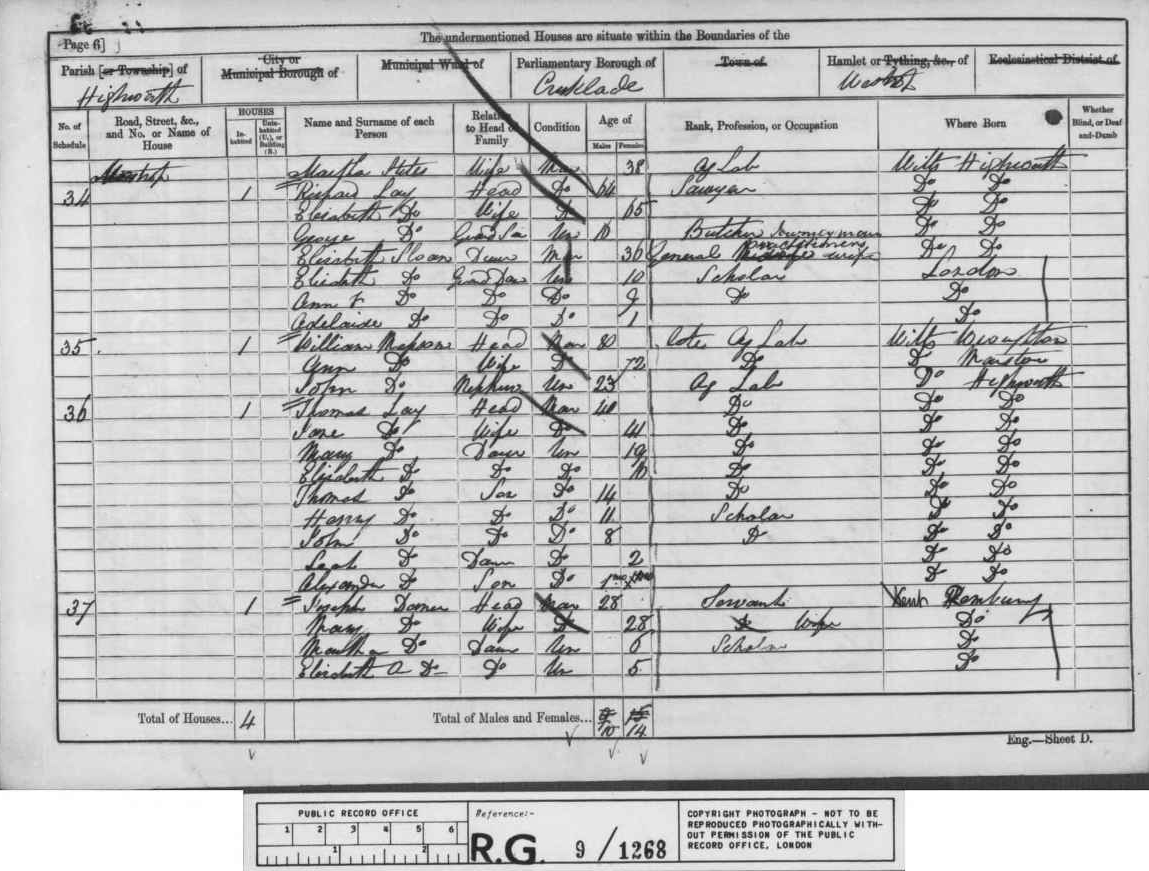 Page 6]
The undermentioned Houses are situate within the Boundaries of the
Parish [or Township] of
Highworth
City or
Municipal Borough of
Municipal Ward of
Parliamentary Borough of
Cricklade
Town of
Hamlet or Tything, &c., of
Ecclesiastical District of
No. of Schedule
Road, Street, &c., and No. or Name of House
HOUSES
Inhabited
Uninhabited (U.), or Building (B.)
Name and Surname of each Person
Relation to Head of Family
Condition
Age of
Males
Females
Rank, Profession, or Occupation
Where Born
Whether Blind, or Deaf-and-Dumb
Martha Wife Mar 38 Ag Lab Wilts Highworth
34 1 Richard Lay Head Do 64 Sawyer Do Do
Elizabeth Do Wife Do 65 Do Do
George Do Grand Son Un Butcher Journeyman Do Do
Elizabeth Sloan Daur Mar 36 General wife Do Do
Elizabeth Do Grand Daur Un 10 Scholar London
Ann Do Do Do 9 Do Do
Adelaide Do Do Do 1 Do
35 1 William Head Mar 80 Ag Lab Wilts Wroughton
Ann Do Wife Do 72 Do Do Marston
John Do Nephew Un 23 Ag Lab Do Highworth
36 1 Thomas Lay Head Mar 40 Do Do Do
Jane Do Wife Do 41 Do Do Do
Mary Do Daur Un 19 Do Do Do
Elizabeth Do Do Do Do Do Do
Thomas Do Son Do 14 Do Do Do
Harry Do Do Do 11 Scholar Do Do
John Do Do Do 8 Do Do Do
Leah Do Daur Do 2 Do Do
Alexander Do Son Do Do Do
37 1 Joseph Head Mar 28 Servant Kent
Mary Do Wife Do 28 Do Wife Do
Martha Do Daur Un 6 Scholar Do
Elizabeth A Do Do Un 5 Do
Total of Houses... 4
Total of Males and Females... 10 14
Eng.—Sheet D.
PUBLIC RECORD OFFICE
1 2 3 4 5 6
1 2
Reference:-
R.G. 9 / 1268
COPYRIGHT PHOTOGRAPH - NOT TO BE
REPRODUCED PHOTOGRAPHICALLY WITH-
OUT PERMISSION OF THE PUBLIC
RECORD OFFICE, LONDON